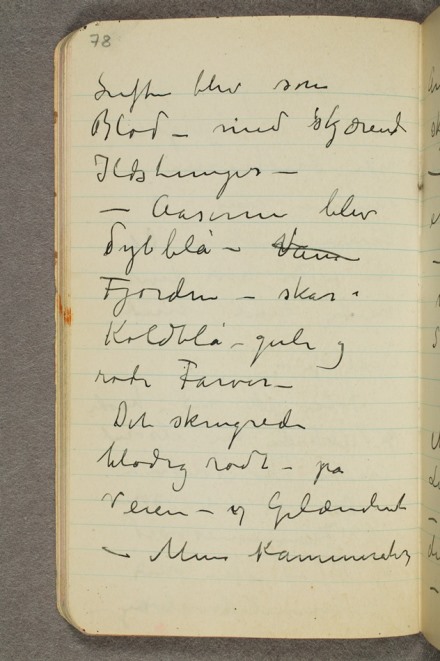 78
Luften blev som
Blod – med skjærende
Ildstunger –
– Aaserne blev
dybblå – Vann
Fjorden – skar i
Koldblå – gule og
røde Farver –
Det skingrede
blodig rødt – på
Veien – og Gelænderet
– Mine Kammerater